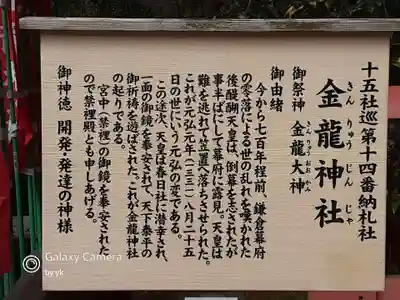 十五社巡第十四番納札社
きんりゅうじんじゃ
金龍神社
御祭神 金龍大神
きんりゅうおおかみ
御由緒
今から七百年程前、鎌倉幕府
の零落による世の乱れを嘆かれた
後醍醐天皇は、倒幕を志されたが
事半ばにして幕府に露見。天皇は
難を逃れて笠置へ落ちさせられた。
これが元弘元年(一三三一)八月二十五
日の世にいう元弘の変である。
この途次、天皇は春日社に潜幸され、
一面の御鏡を奉安されて、天下泰平の
御祈祷を遊ばされた。これが金龍神社
の起りである。
宮中(禁裡)の御鏡を奉安された
ので禁裡殿とも申しあげる。
御神徳 開発・発達の神様
Galaxy Camera
by yk